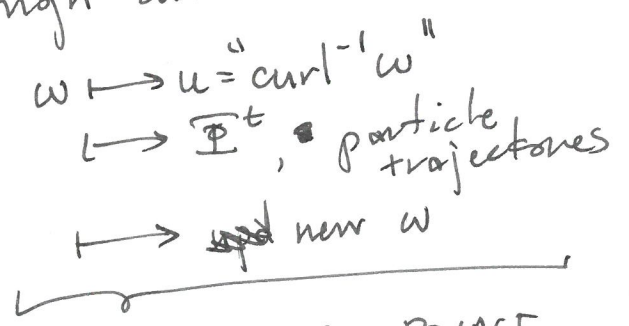 ω ↦ u = "curl⁻¹ ω"
↦ Φᵗ, particle
trajectories
↦ new ω